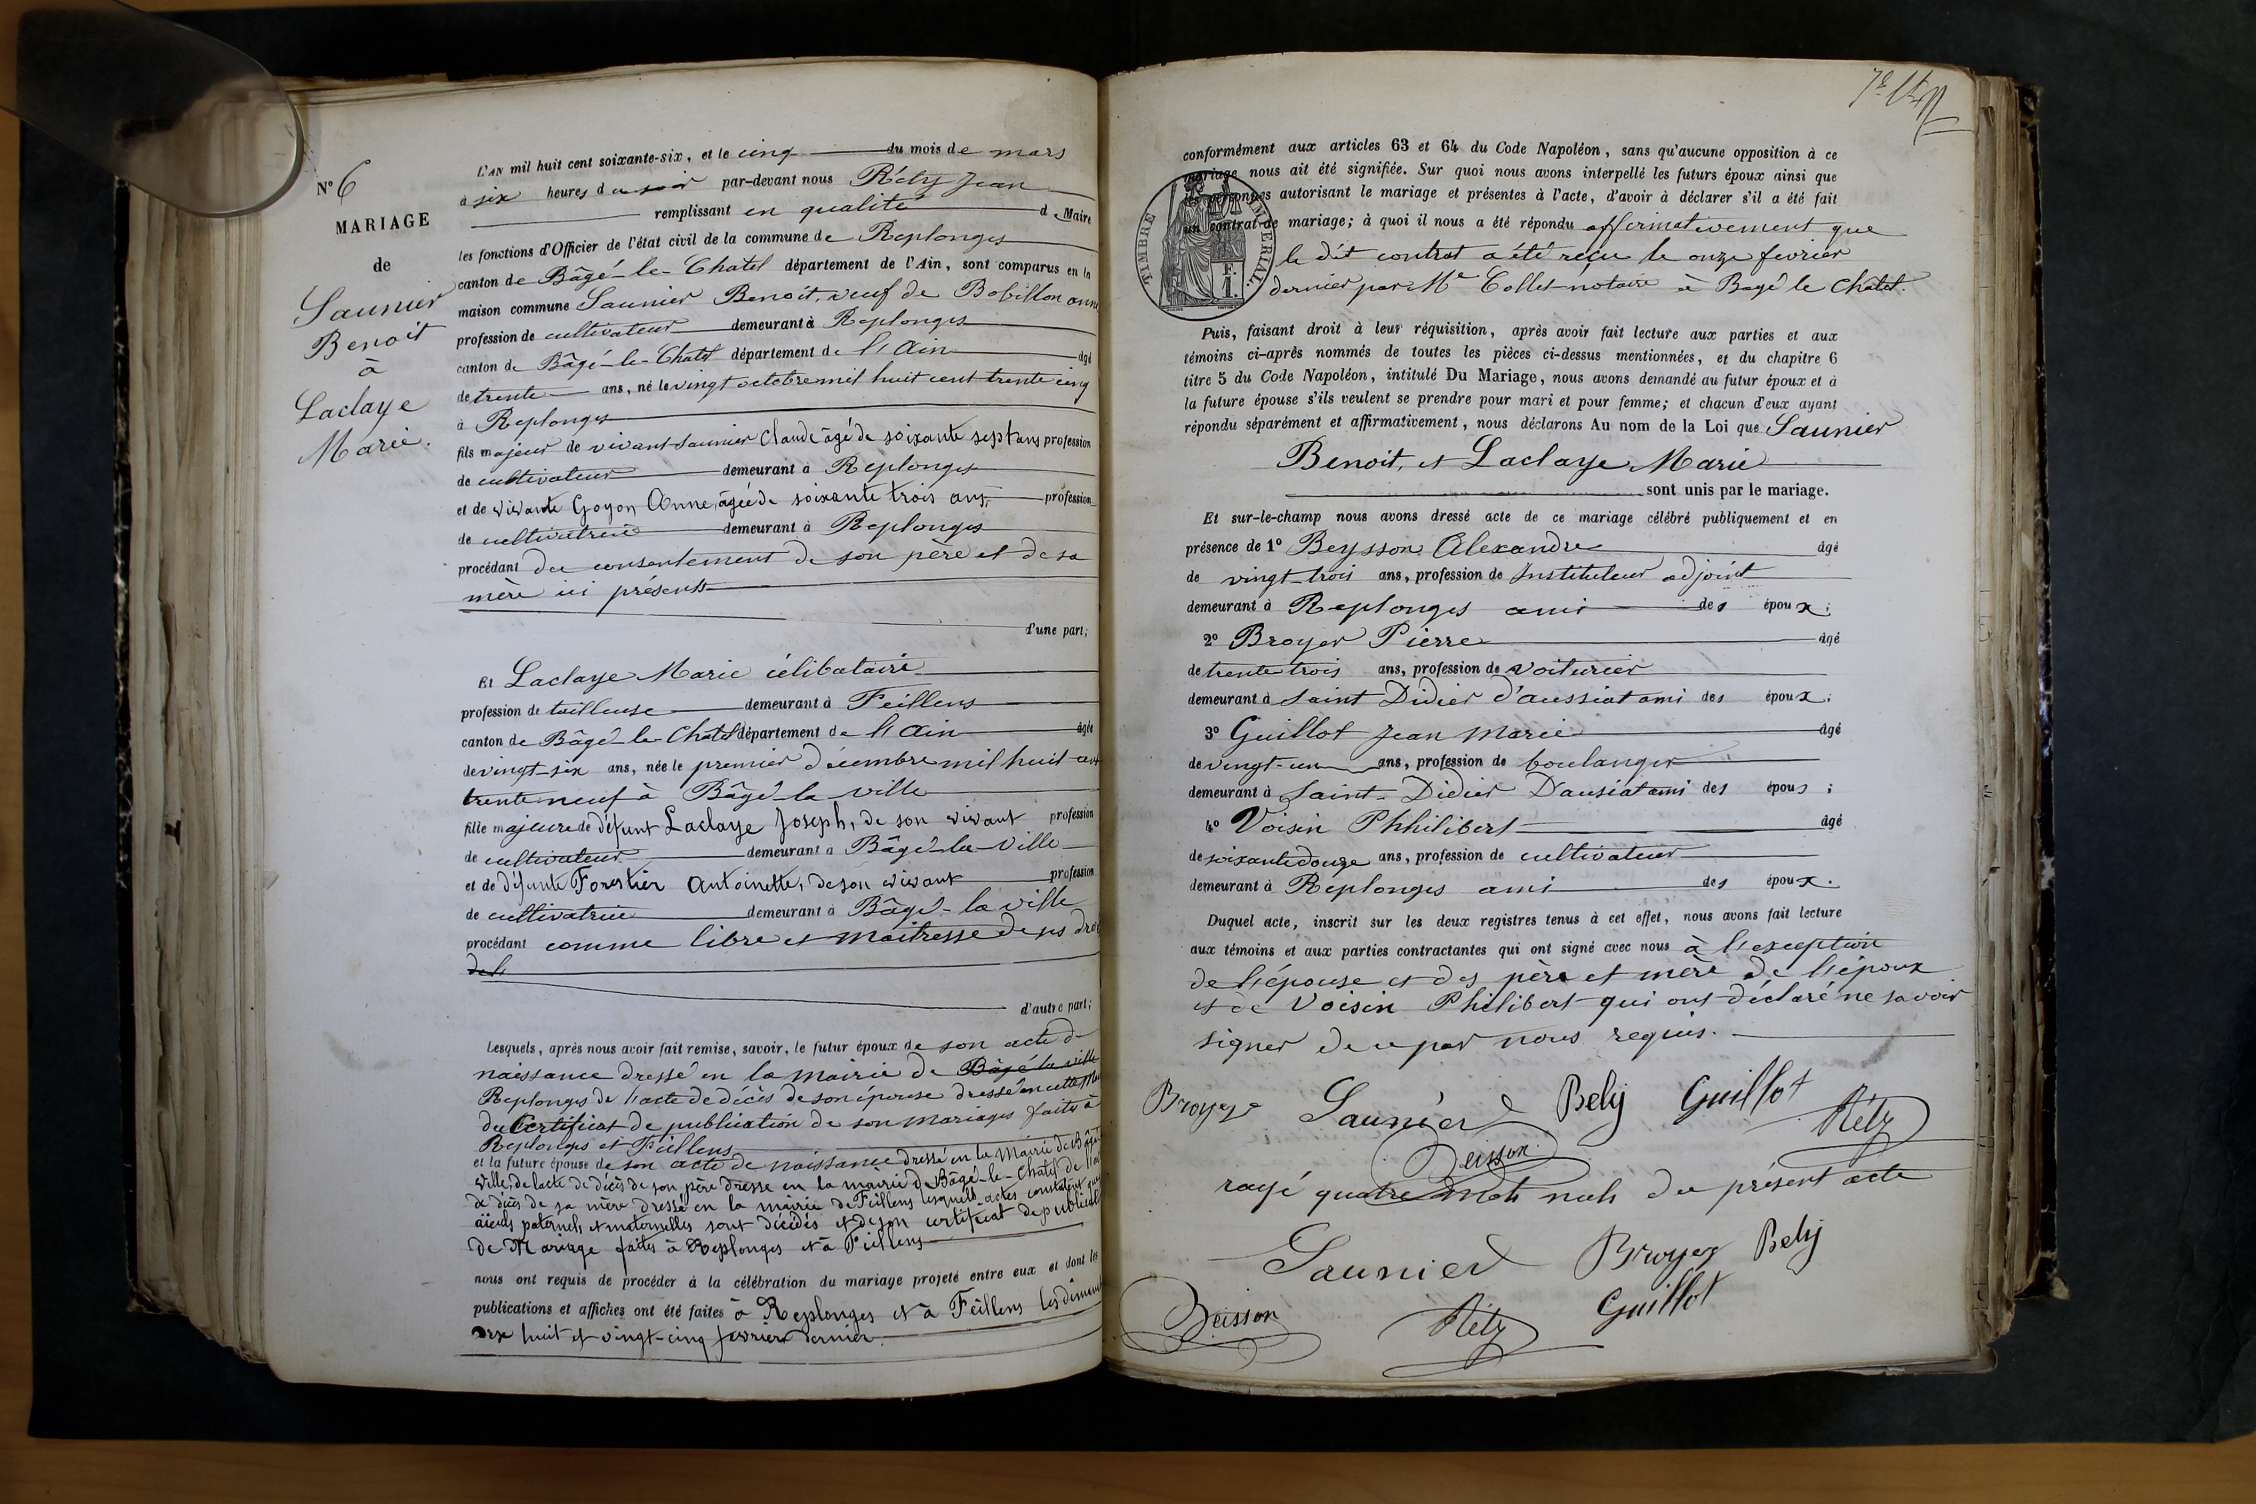 N° 6
MARIAGE
de
Saunier
Benoit
à
Laclaye
Marie.
L'AN mil huit cent soixante-six, et le cinq du mois de mars
à six heures du soir par-devant nous Réty Jean
remplissant en qualité de Maire
les fonctions d'Officier de l'état civil de la commune de Replonges
canton de Bâgé-le-Chatel département de l'Ain, sont comparus en la
maison commune Saunier Benoit, veuf de Bobillon anne
profession de cultivateur demeurant à Replonges
canton de Bâgé-le-Chatel département de l'Ain âgé
de trente ans, né le vingt octobre mil huit cent trente cinq
à Replonges
fils majeur de vivant Saunier Claude âgé de soixante sept ans profession
de cultivateur demeurant à Replonges
et de vivante Goyon Anne, âgée de soixante trois ans, profession
de cultivatrice demeurant à Replonges
procédant du consentement de son père et de sa
mère ici présents
d'une part;
Et Laclaye Marie célibataire
profession de tailleuse demeurant à Feillens
canton de Bâgé-le-Chatel département de l'Ain âgée
de vingt-six ans, née le premier Décembre mil huit cent
trente neuf à Bâgé-la-ville
fille majeure de défunt Laclaye Joseph, de son vivant profession
de cultivateur demeurant à Bâgé-la-Ville
et de défunte Forestier Antoinette, de son vivant profession
de cultivatrice demeurant à Bâgé-la ville
procédant comme libre et maitresse de ses droi
de l'
d'autre part;
Lesquels, après nous avoir fait remise, savoir, le futur époux de son acte de
naissance dressé en la mairie de Bâgé la ville
Replonges de l'acte de décès de son épouse dressé en cette Mai
du Certificat de publication de son mariages faite à
Replonges et Feillens
et la future épouse de son acte de naissance dressé en la Mairie de Bâgé
Ville, de lacte de décès de son père dressé en la mairie de Bâgé-le-Chatel de l'acte
de décès de sa mère dressé en la mairie de Feillens lesquels actes constatent que
aïeuls paternels et maternelles sont décédés et de son certificat de publicat
de Mariage faites à Replonges et à Feillens
nous ont requis de procéder à la célébration du mariage projeté entre eux et dont les
publications et affiches ont été faites à Replonges et à Feillens les dimanc
dix huit et vingt-cinq fevrier dernier
conformément aux articles 63 et 64 du Code Napoléon, sans qu'aucune opposition à ce
mariage nous ait été signifiée. Sur quoi nous avons interpellé les futurs époux ainsi que
les personnes autorisant le mariage et présentes à l'acte, d'avoir à déclarer s'il a été fait
un contrat de mariage; à quoi il nous a été répondu affirmativement que
le dit contrat a été reçu le onze fevrier
dernier par Me Collet notaire à Bagé le Châtel.
TIMBRE IMPERIAL.
F.
1.
Puis, faisant droit à leur réquisition, après avoir fait lecture aux parties et aux
témoins ci-après nommés de toutes les pièces ci-dessus mentionnées, et du chapitre 6
titre 5 du Code Napoléon, intitulé Du Mariage, nous avons demandé au futur époux et à
la future épouse s'ils veulent se prendre pour mari et pour femme; et chacun d'eux ayant
répondu séparément et affirmativement, nous déclarons Au nom de la Loi que Saunier
Benoit, et Laclaye Marie
sont unis par le mariage.
Et sur-le-champ nous avons dressé acte de ce mariage célébré publiquement et en
présence de 1° Beysson Alexandre âgé
de vingt-trois ans, profession de Instituteur adjoint
demeurant à Replonges ami des époux;
2° Broyer Pierre âgé
de trente trois ans, profession de voiturier
demeurant à Saint Didier d'aussiat ami des époux;
3° Guillot Jean Marie âgé
de vingt-un ans, profession de boulanger
demeurant à Saint-Didier D'ausiat ami des époux;
4° Voisin Phhilibert âgé
de soixante douze ans, profession de cultivateur
demeurant à Replonges ami des époux.
Duquel acte, inscrit sur les deux registres tenus à cet effet, nous avons fait lecture
aux témoins et aux parties contractantes qui ont signé avec nous à l'exception
de l'épouse et des père et mère de l'époux
et de Voisin Philibert qui ont déclaré ne savoir
signer de ce par nous requis.
Broyer Saunier Bely Guillot Réty
Beisson
rayé quatre mots nuls du présent acte
Saunier Broyer Bely
Beisson Réty Guillot